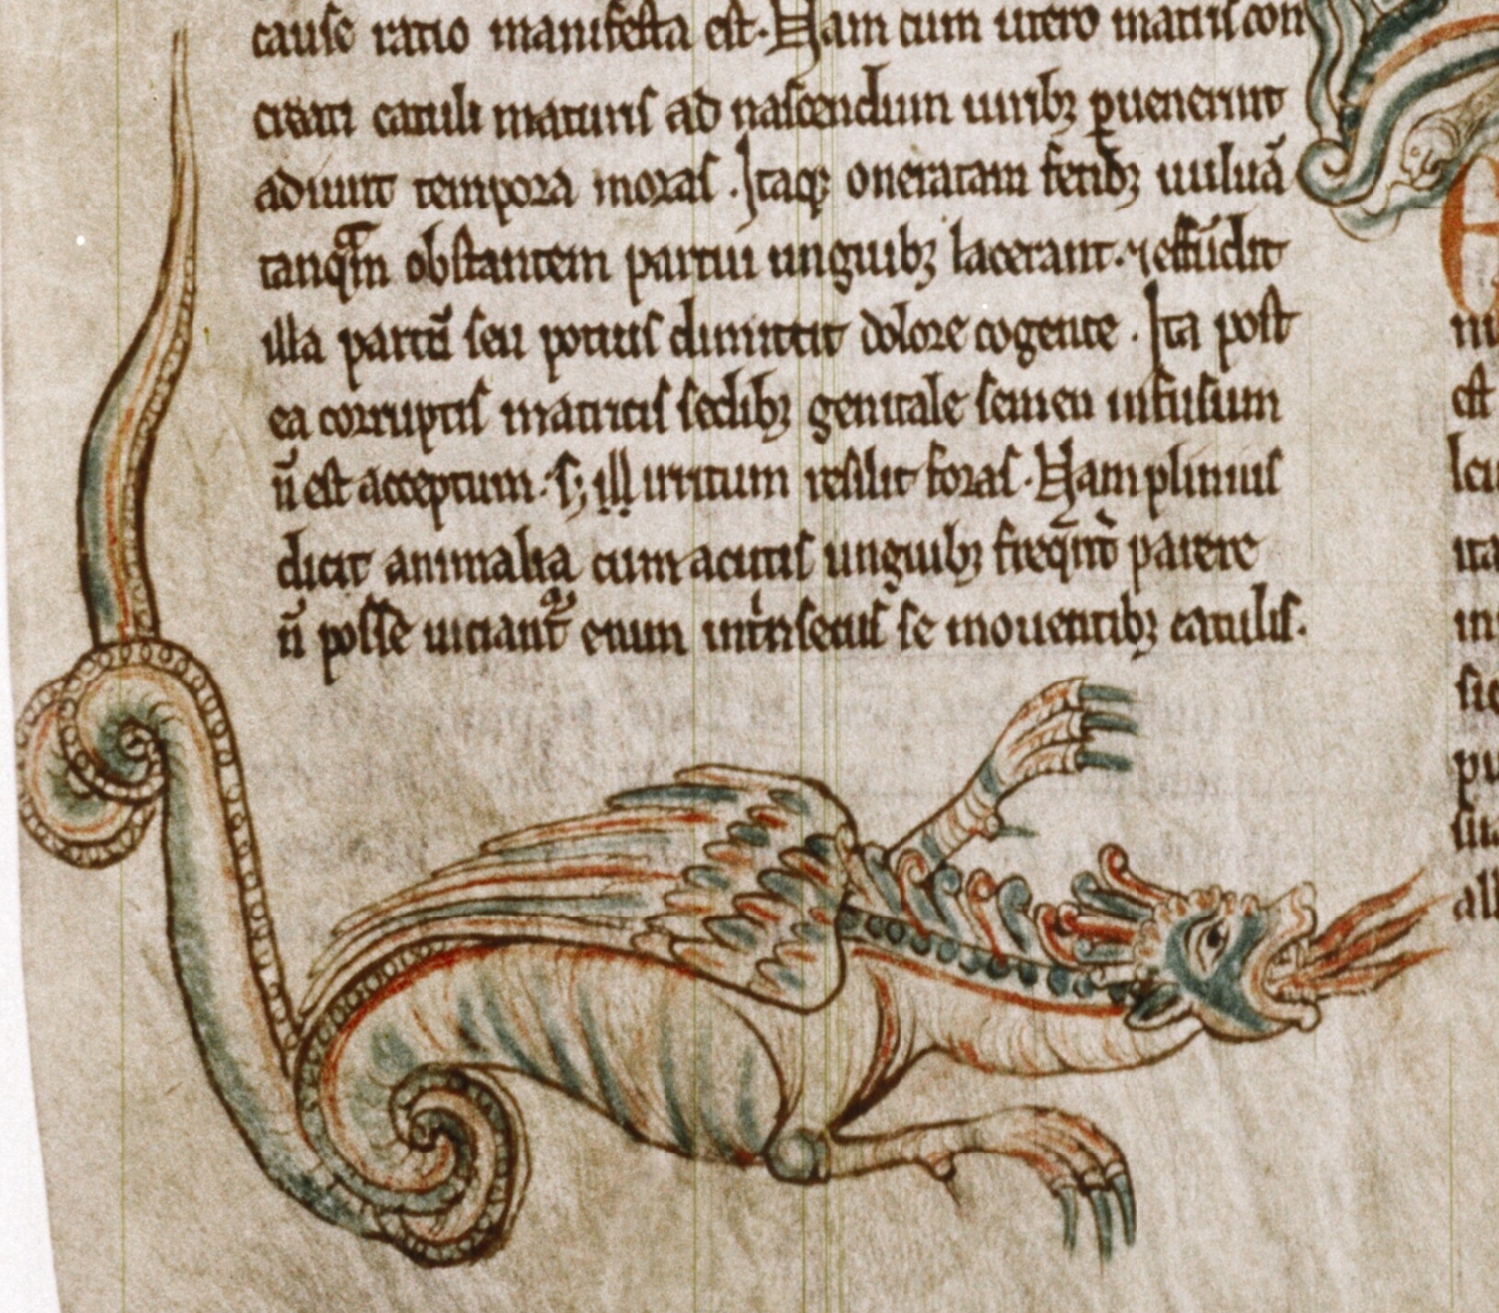 cause ratio manifesta est. Nam cum utero matris con
creati catuli maturis ad nascendum uiribꝫ ꝑuenerint
adiunt tempora moras. Itaqꝫ oneratam fetibꝫ uuluā
tanqᵃm obstantem partui unguibꝫ lacerant. ⁊ effūdit
illa partū seu potius dimittit dolore cogente. Ita post
ea corruptis matricis sedibꝫ genitale semen infusum
n̄ est acceptum. sꝫ irritum resilit foras. Nam plinius
dicit animalia cum acutis unguibꝫ freqn̄t parere
n̄ posse uiciant᷑ enim int̍nsecus se mouentibꝫ catulis.